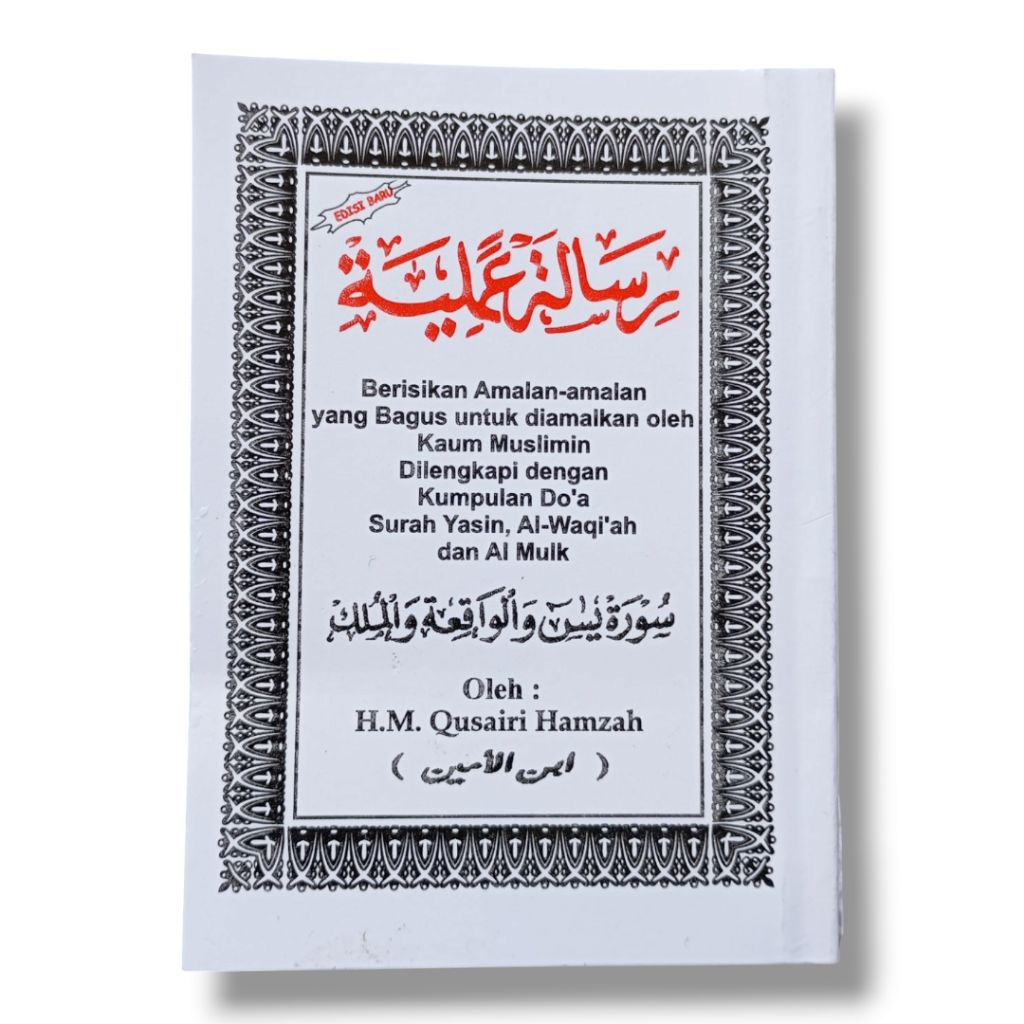 EDISI BARU
رِسَالَة عَمَلِيَة
Berisikan Amalan-amalan
yang Bagus untuk diamalkan oleh
Kaum Muslimin
Dilengkapi dengan
Kumpulan Do'a
Surah Yasin, Al-Waqi'ah
dan Al Mulk
سُوْرَةْ يٰسٓ وَالْوَاقِعَة وَالْمُلْك
Oleh :
H.M. Qusairi Hamzah
( ابن الأمين )